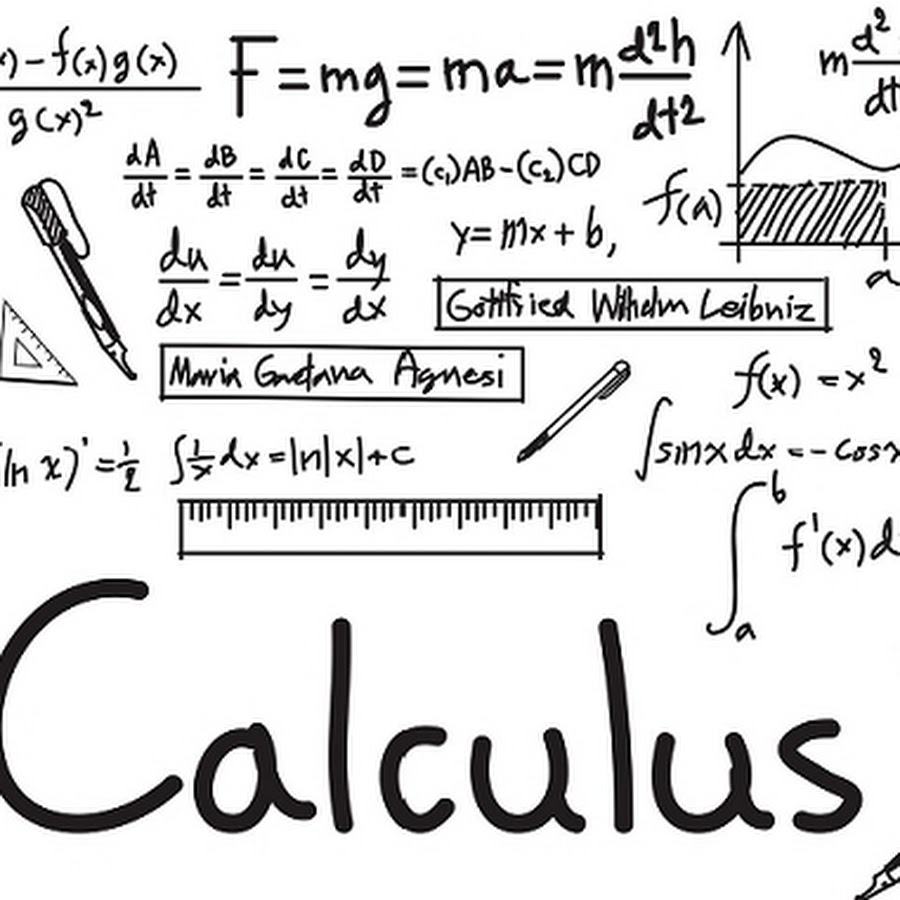 x) - f(x)g(x)
g(x)²
F = mg = ma = m d²h
dt2
m d²
dt
dA/dt = dB/dt = dC/dt = dD/dt = (c₁)AB - (c₂)CD
f(a)
y = mx + b,
du/dx = du/dy = dy/dx
a
Gottfried Wilhelm Leibniz
Maria Gaetana Agnesi
f(x) = x²
(ln x)' = 1/2
∫ 1/x dx = ln|x| + c
∫ sinx dx = - cosx
∫ b a f'(x) d
Calculus